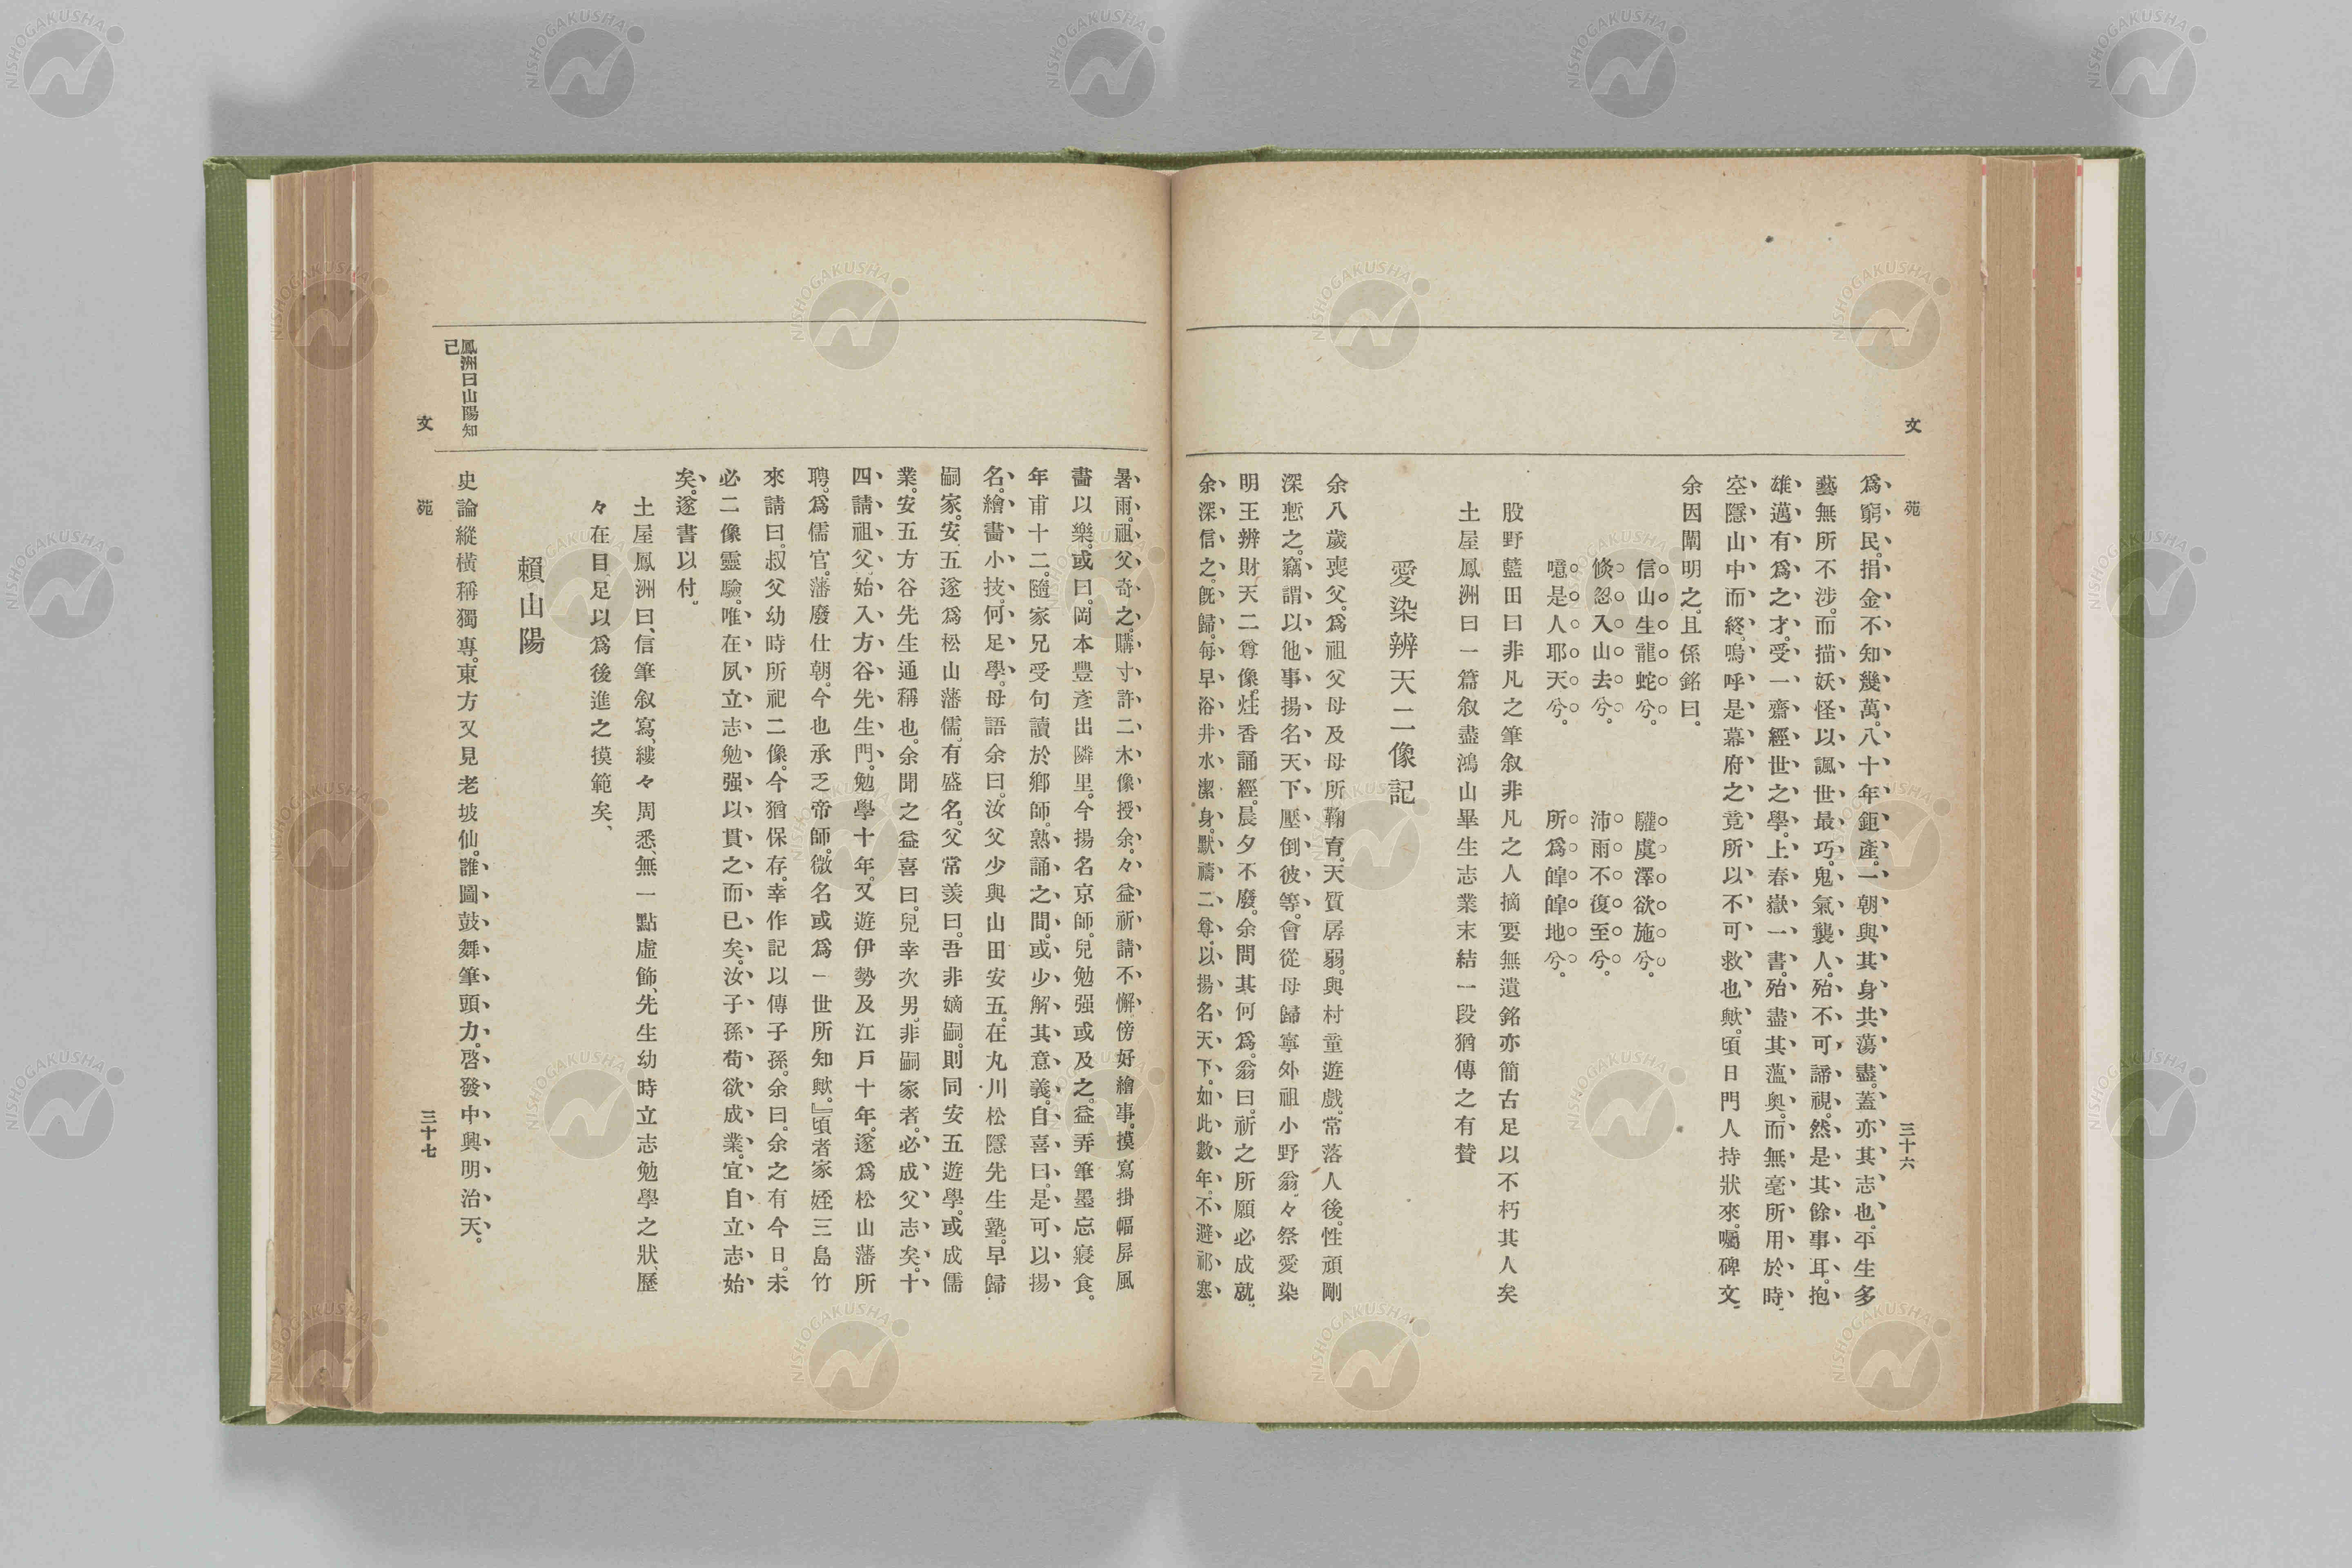 文苑
三十六
爲窮民。捐金不知幾萬。八十年鉅產。一朝與其身共蕩盡。蓋亦其志也。平生多
藝無所不涉。而描妖怪以諷世最巧。鬼氣襲人。殆不可諦視。然是其餘事耳。抱
雄邁有爲之才。受一齋經世之學。上春嶽一書。殆盡其薀奧。而無毫所用於時、
空隱山中而終。嗚呼是幕府之竟所以不可救也歟。頃日門人持狀來。囑碑文、
余因闡明之。且係銘曰。
信山生龍蛇兮。 驩虞澤欲施兮。
倏忽入山去兮。 沛雨不復至兮。
噫是人耶天兮。 所爲皥皥地兮。
股野藍田曰非凡之筆叙非凡之人摘要無遺銘亦簡古足以不朽其人矣
土屋鳳洲曰一篇叙盡鴻山畢生志業末結一段猶傳之有贊
愛染辨天二像記
余八歲喪父。爲祖父母及母所鞠育。天質孱弱。與村童遊戲。常落人後。性頑剛
深慙之。竊謂以他事揚名天下。壓倒彼等。會從母歸寧外祖小野翁。々祭愛染
明王辨財天二尊像。炷香誦經。晨夕不廢。余問其何爲。翁曰。祈之所願必成就。
余深信之。旣歸。每早浴井水潔身。默禱二尊。以揚名天下。如此數年。不避祁寒
暑雨。祖父奇之。購寸許二木像授余。々益祈請不懈。傍好繪事。摸寫掛幅屏風
畵以樂。或曰。岡本豐彥出隣里。今揚名京師。兒勉强或及之。益弄筆墨忘寢食。
年甫十二。隨家兄受句讀於鄕師。熟誦之間。或少解其意義。自喜曰。是可以揚
名。繪畵小技。何足學。母語余曰。汝父少與山田安五。在丸川松隱先生塾。早歸
嗣家。安五遂爲松山藩儒。有盛名。父常羨曰。吾非嫡嗣。則同安五遊學。或成儒
業。安五方谷先生通稱也。余聞之益喜曰。兒幸次男。非嗣家者。必成父志矣。十
四請祖父。始入方谷先生門。勉學十年。又遊伊勢及江戶十年。遂爲松山藩所
聘。爲儒官。藩廢仕朝。今也承乏帝師。微名或爲一世所知歟。』頃者家姪三島竹
來請曰。叔父幼時所祀二像。今猶保存。幸作記以傳子孫。余曰。余之有今日。未
必二像靈驗。唯在夙立志勉强以貫之而已矣。汝子孫苟欲成業。宜自立志始
矣。遂書以付。
土屋鳳洲曰、信筆叙寫、縷々周悉、無一點虛飾、先生幼時立志勉學之狀、歷
々在目、足以爲後進之摸範矣、
賴山陽
史論縱橫稱獨專。東方又見老坡仙。誰圖鼓舞筆頭力。啓發中興明治天。
鳳洲曰山陽知
己
文苑
三十七
NISHOGAKUSHA